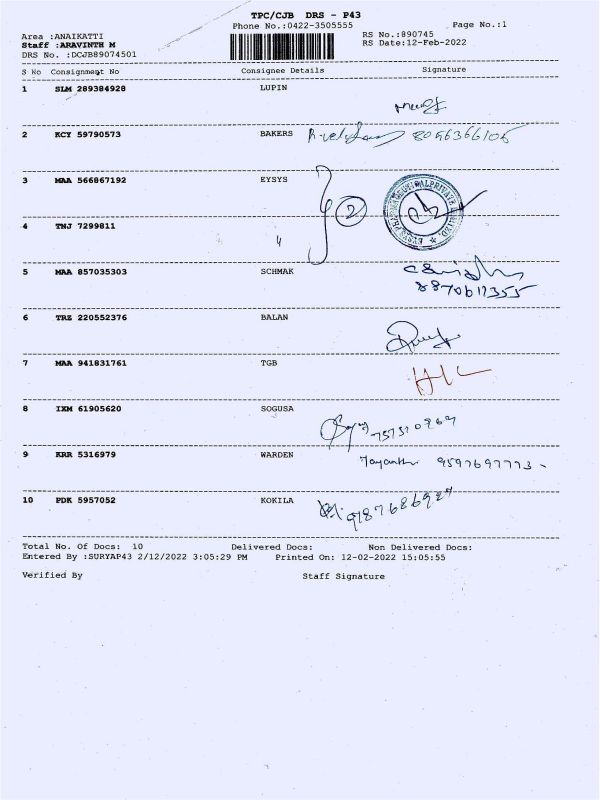 TPC/CJB DRS - P43
Phone No.:0422-3505555
Page No.:1
Area :ANAIKATTI
RS No.:890745
Staff :ARAVINTH M
RS Date:12-Feb-2022
DRS No. :DCJB89074501
S No Consignment No Consignee Details Signature
1 SLM 289384928 LUPIN
2 KCY 59790573 BAKERS 8056366105
3 MAA 566867192 EYSYS 2
4 TNJ 7299811 "
5 MAA 857035303 SCHMAK
8870611355
6 TRZ 220552376 BALAN
7 MAA 941831761 TGB
8 IXM 61905620 SOGUSA
9 KRR 5316979 WARDEN Jayanthi 9597697773
10 PDK 5957052 KOKILA
Total No. Of Docs: 10 Delivered Docs: Non Delivered Docs:
Entered By :SURYAP43 2/12/2022 3:05:29 PM Printed On: 12-02-2022 15:05:55
Verified By Staff Signature